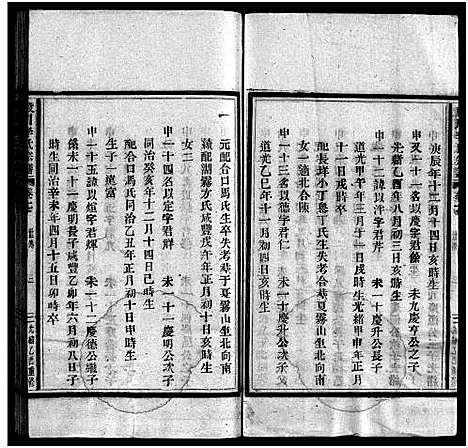 庚辰年十二月十四日亥時生
申又一十一名以慶字君餘　未九慶亨公之子
光緒乙酉年八月初三日亥時生
申一十二諱以濟字君芹　未一十慶升公長子
道光甲午年三月十一日戌時生光緒甲申年正月
十一日戌時卒
配長垾小丁灣丁氏生失考合葬夏霧山坐北向南
申一十三名以德字君仁　未一十慶升公次子
道光乙巳年十一月初四日亥時生
一
元配合口馮氏生卒失考葬于夏霧山坐北向南
繼配湖霧方氏咸豐戊午年正月初十日亥時生
女二
申一十四名以定字君輔　未一十一慶明公次子
同治癸亥年十二月十四日巳時生
配合口馮氏同治乙丑年正月初十日申時生
子一
申一十五諱以煊字君輝　未一十二慶德公繼子
係未一十一慶明長子咸豐乙卯年六月初八日子
時生同治辛未年四月十五日卯時卒